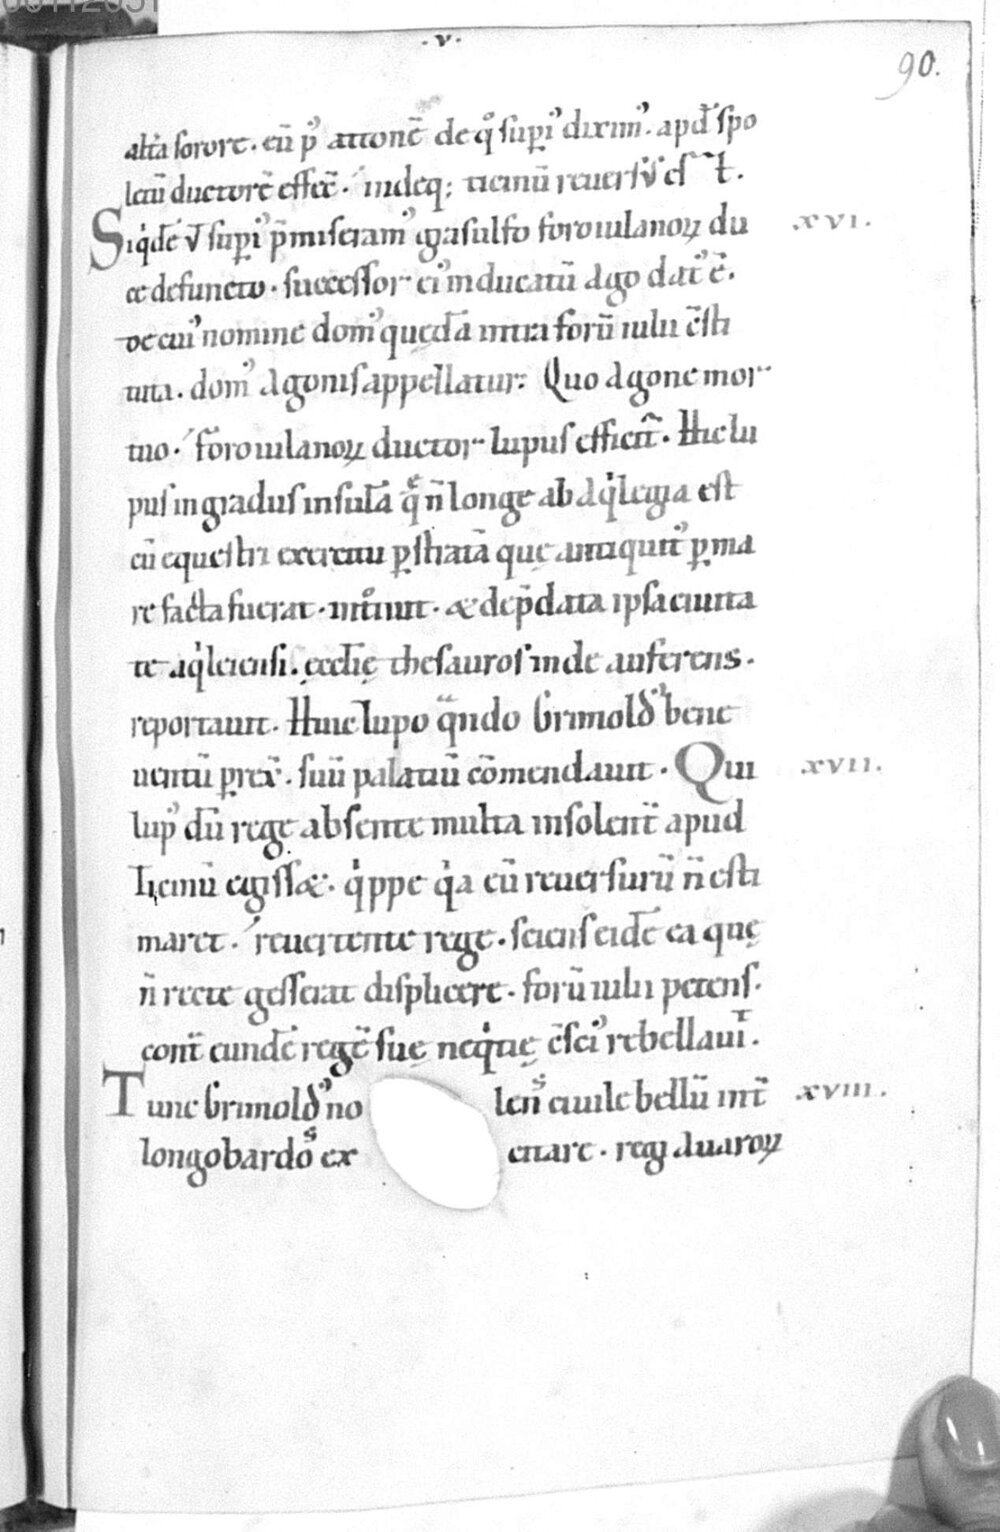 ·v·
90.
alt̄a sorore. cū p᷒ attonē de q° sup̱i᷒ dixim᷒. apđ spo
letū ductorē effec̄. indeq; ticinū reuersus est.
Siq͛dē ṽ sup̱i᷒ p̄miseram᷒ grasulfo foroiulanoꝝ du
ce defuncto. successor ei᷒ in ducatū ago dat᷒ ē.
de cui᷒ nomine dom᷒ quędā intra forū iulii c̄sti
tuta. dom᷒ agonis appellatur. Quo agone mor
tuo. foroiulanoꝝ ductor lupus efficit̄. Hic lu
pus in gradus insulā q̄ n̄ longe ab aq͛legia est
cū equestri exercitu ꝑ stratā quę antiquit᷒ ꝑ ma
re facta fuerat. int°iuit. & dep̄data ipsa ciuita
te aq͛leiensi. ęccl̄ię thesauros inde auferens.
reportauit. Huic lupo q̄ndo Grimold᷒ bene
uentū ꝑrex̄. suū palatiū cōmendauit. Qui
lup᷒ dū rege absente multa insolent̄ apud
Ticinū egiss&. q͛ppe q͛a eū reuersurū n̄ esti
maret. reuertente rege. sciens eidē ea quę
n̄ recte gesserat displicere. forū iulii petens.
cont̄ eundē regē suę neq͛tię c̄sci᷒ rebellauit.
Tunc Grimold᷒ no lens ciuile bellū int̄
longobardos ex citare. regi auaroꝝ
xvi.
xvii.
xviii.